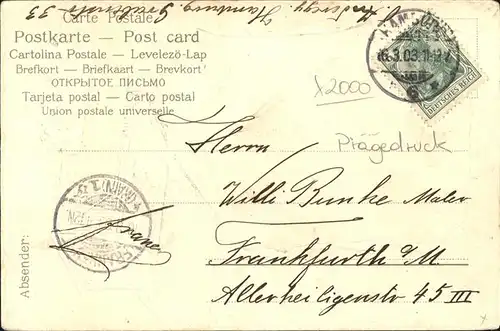 Carte Postale
Hamburg 33
Postkarte — Post card
Cartolina Postale — Levelezö-Lap
Brefkort — Briefkaart — Brevkort
ОТКРЫТОЕ ПИСЬМО
Tarjeta postal — Carto postal
Union postale universelle
HAMBURG
3.03.11-12
DEUTSCHES REICH
x2000
Prägedruck
Herrn
Willi Bunke Maler
Frankfurth a/M.
Allerheiligenstr 45 III
(MAIN)
franco
Absender: